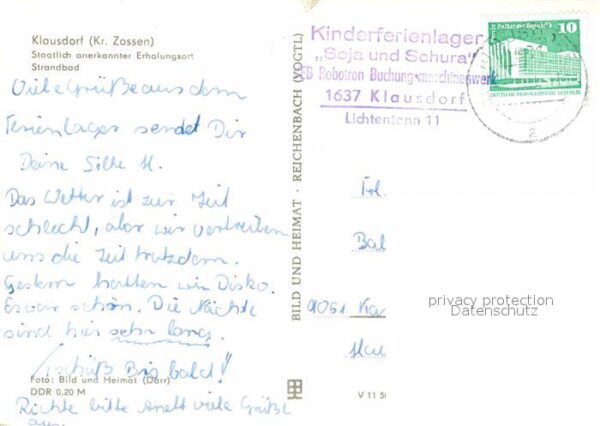 Klausdorf (Kr. Zossen)
Staatlich anerkannter Erholungsort
Strandbad
Viele Grüße aus dem
Ferienlager sendet Dir
Deine Silke H.
Das Wetter ist zur Zeit
schlecht, aber wir vertreiben
uns die Zeit trotzdem.
Gestern hatten wir Disko.
Es war schön. Die Nächte
sind hier sehr lang.
Tschüß Bis bald!
Foto: Bild und Heimat (Darr)
DDR 0,20 M
Richte bitte Anett viele Grüße
aus.
BILD UND HEIMAT · REICHENBACH (VOGTL)
Kinderferienlager
„Soja und Schura"
VEB Robotron Buchungsmaschinenwerk
1637 Klausdorf
Lichtentonn 11
Palast der Republik 10
DEUTSCHE DEMOKRATISCHE REPUBLIK
a
Frl.
9061 Kar
privacy protection
Datenschutz
V 11 50